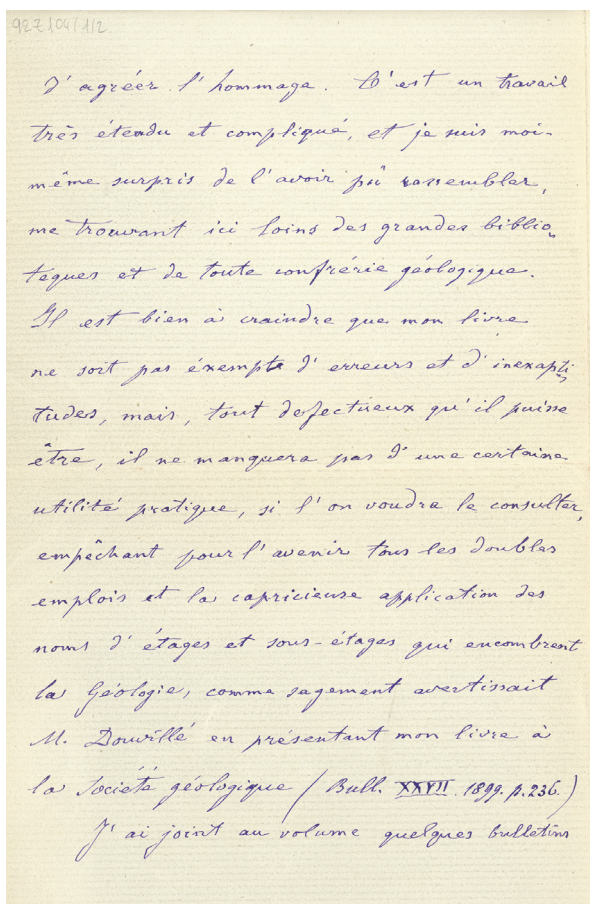 927/04/1/2
d'agréer l'hommage. C'est un travail
três étendu et compliqué, et je suis moi-
même surpris de l'avoir pû rassembler,
me trouvant ici loins des grandes biblio-
teques et de toute confrérie géologique.
Il est bien à craindre que mon livre
ne soit pas éxempte d'erreurs et d'inexapti
tudes, mais, tout defectueux qu'il puisse
être, il ne manquera pas d'une certaine
utilité pratique, si l'on voudra le consulter,
empêchant pour l'avenir tous les doubles
emplois et la capricieuse application des
noms d'étages et sous-étages qui encombrent
la Géologie, comme sagement avertissait
M. Douvillé en présentant mon livre à
la Société géologique (Bull. XXVII. 1899. p. 236.)
J'ai joint au volume quelques bulletins